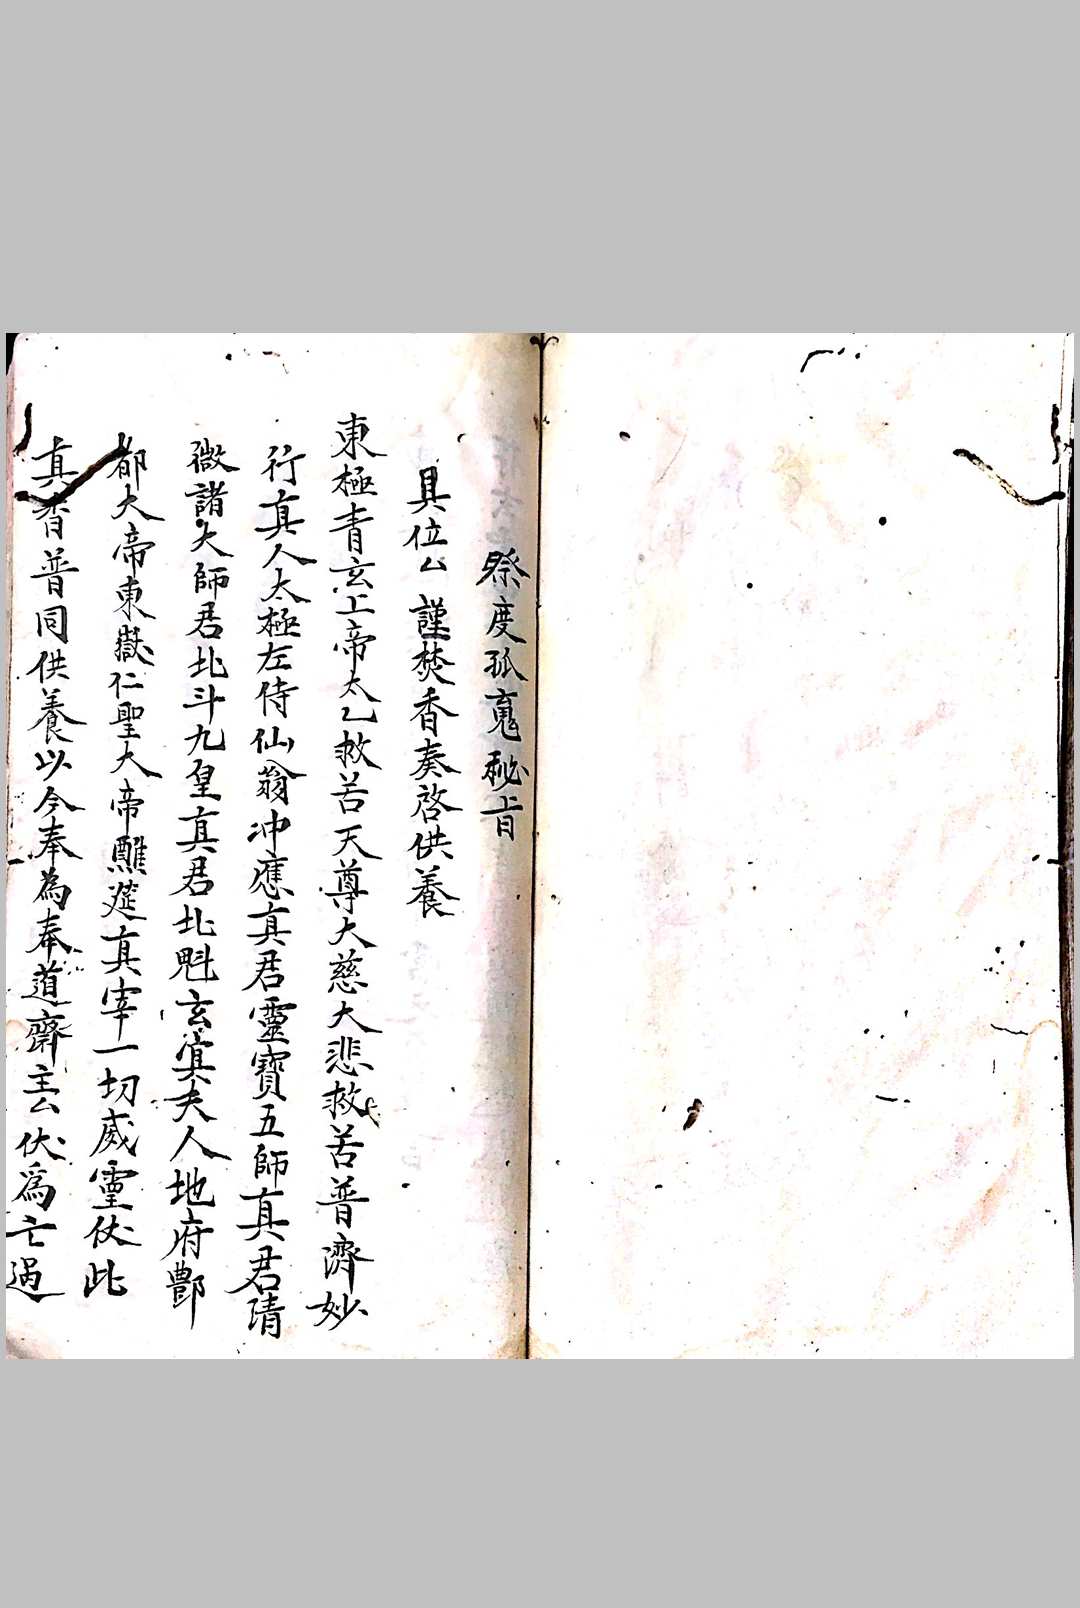 祭度孤䰟秘旨
具位厶謹焚香奏啓供養
東極青玄上帝太乙救苦天尊大慈大悲救苦普濟妙
行真人太極左侍仙翁冲應真君靈寶五師真君清
微諸大師君北斗九皇真君北魁玄㝠夫人地府酆
都大帝東嶽仁聖大帝醮筵真宰一切威靈伏此
真香普同供養以今奉為奉道齋主厶伏爲亡過